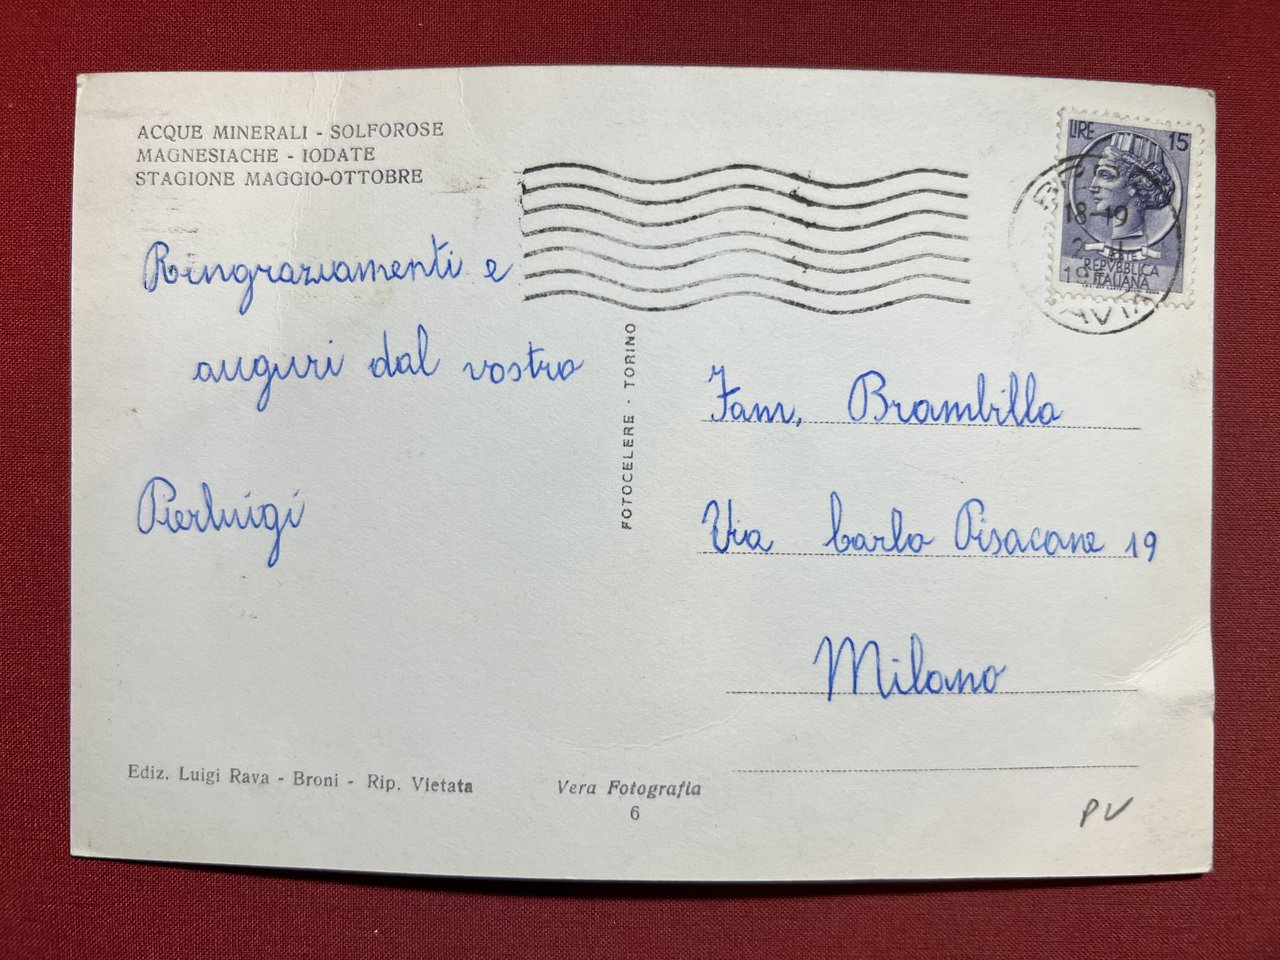 ACQUE MINERALI - SOLFOROSE
MAGNESIACHE - IODATE
STAGIONE MAGGIO-OTTOBRE
Ringraziamenti e
auguri dal vostro
Pierluigi
Ediz. Luigi Rava - Broni - Rip. Vietata
FOTOCELERE · TORINO
Vera Fotografia
6
LIRE 15
18-19
POSTE
REPVBBLICA
ITALIANA
PAVIA
Fam. Brambilla
Via Carlo Pisacane 19
Milano
PV